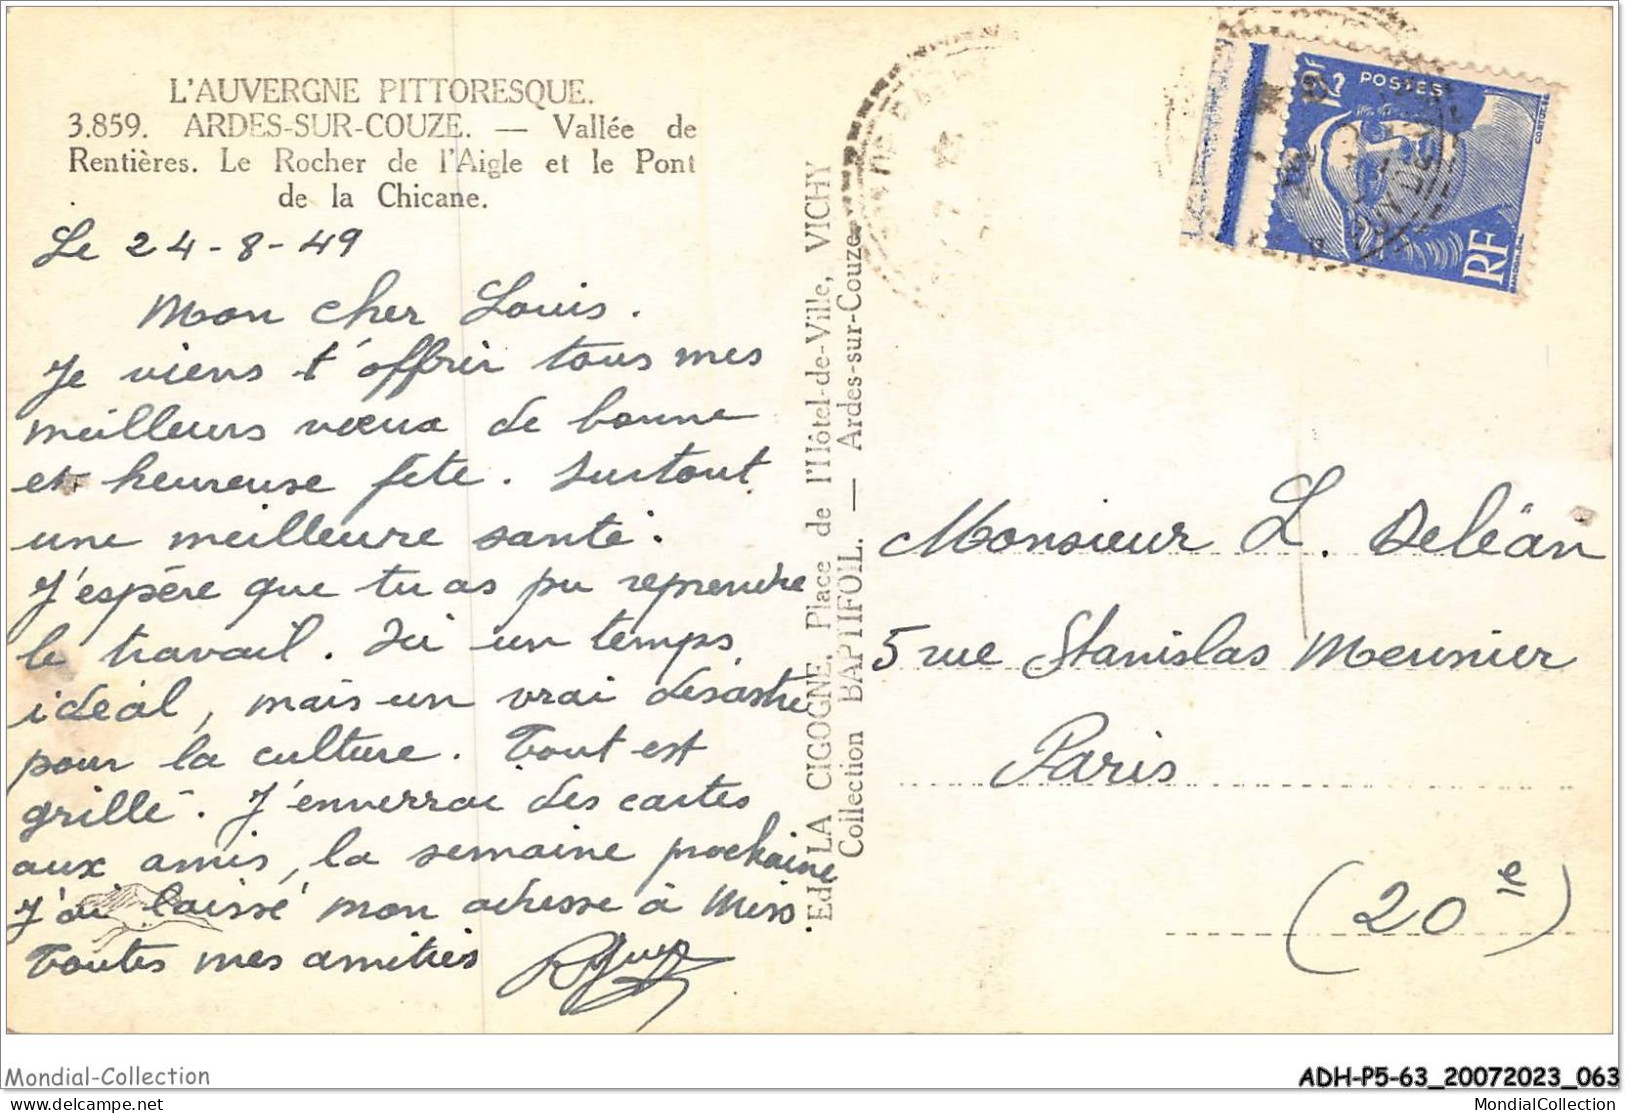 L'AUVERGNE PITTORESQUE.
3.859. ARDES-SUR-COUZE. — Vallée de
Rentières. Le Rocher de l'Aigle et le Pont
de la Chicane.
Le 24-8-49
Mon cher Louis.
Je viens t'offrir tous mes
meilleurs vœux de bonne
et heureuse fête. Surtout
une meilleure santé.
J'espère que tu as pu reprendre
le travail. Ici un temps
idéal, mais un vrai désastre
pour la culture. Tout est
grillé. J'enverrai des cartes
aux amis, la semaine prochaine
J'ai laissé mon adresse à Miss.
Toutes mes amitiés
Ed. LA CIGOGNE, Place de l'Hôtel-de-Ville, VICHY
Collection BAPTIFOIL. — Ardes-sur-Couze
POSTES
RF
Monsieur L. Deléan
5 rue Stanislas Meunier
Paris
(20e)
Mondial-Collection
ADH-P5-63_20072023_063
delcampe.net
MondialCollection